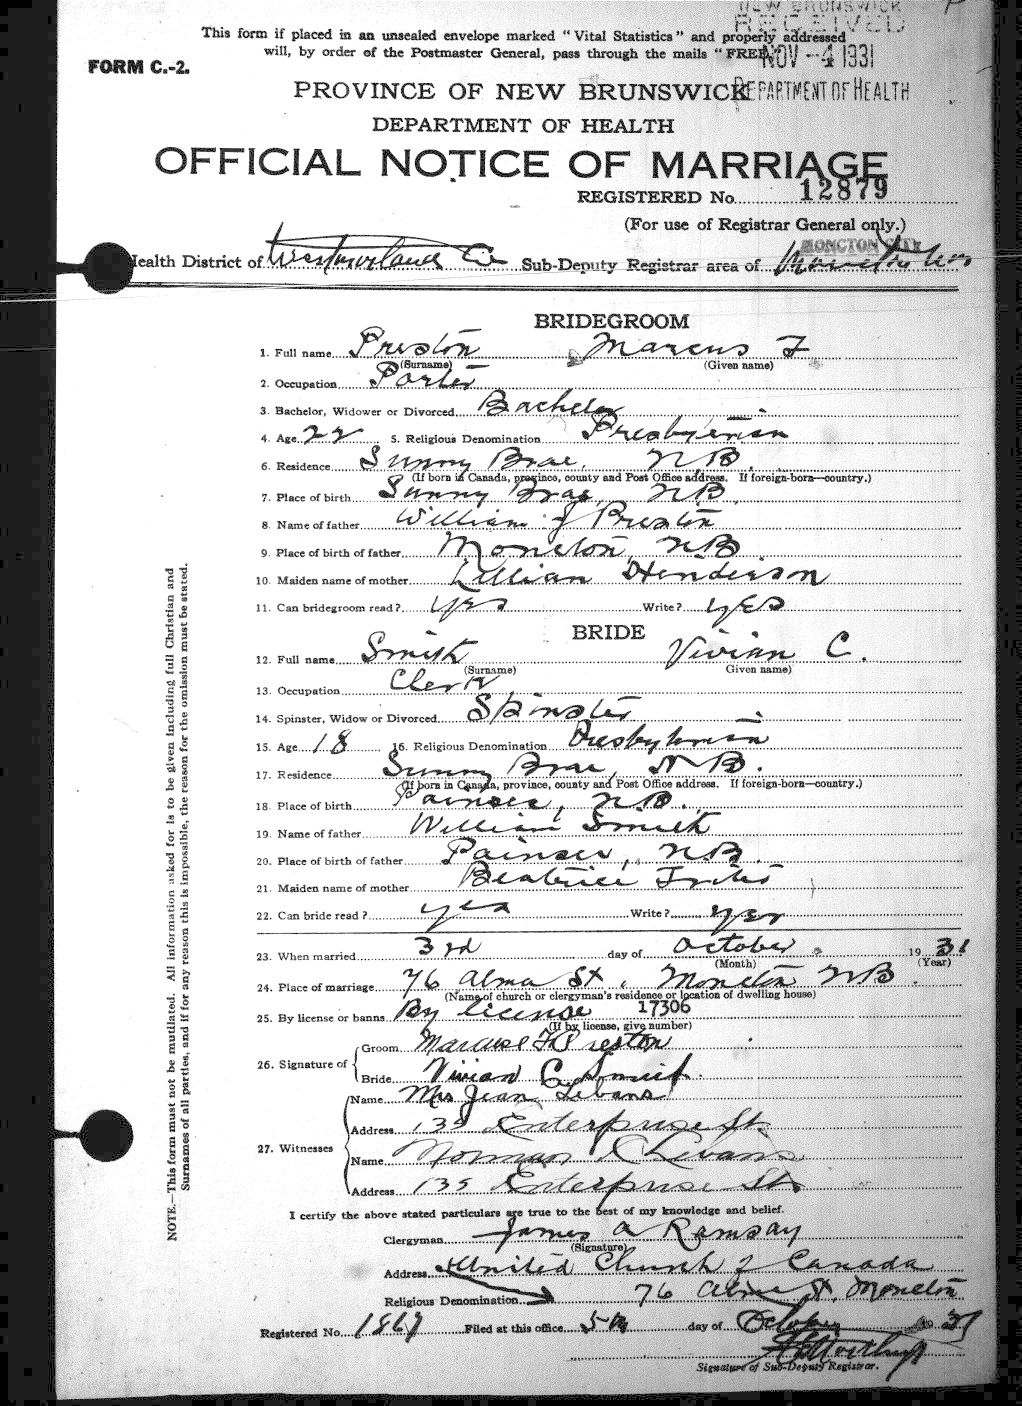 NEW BRUNSWICK
RECEIVED
NOV -4 1931
DEPARTMENT OF HEALTH
This form if placed in an unsealed envelope marked "Vital Statistics" and properly addressed
will, by order of the Postmaster General, pass through the mails "FREE
FORM C.-2.
PROVINCE OF NEW BRUNSWICK
DEPARTMENT OF HEALTH
OFFICIAL NOTICE OF MARRIAGE
REGISTERED No. 12879
(For use of Registrar General only.)
MONCTON CITY
Health District of Westmorland Co Sub-Deputy Registrar area of Moncton
BRIDEGROOM
1. Full name Preston Marcus F
(Surname) (Given name)
2. Occupation Porter
3. Bachelor, Widower or Divorced Bachelor
4. Age 22 5. Religious Denomination Presbyterian
6. Residence Sunny Brae, NB.
(If born in Canada, province, county and Post Office address. If foreign-born—country.)
7. Place of birth Sunny Brae, NB.
8. Name of father William J Preston
9. Place of birth of father Moncton, NB.
10. Maiden name of mother Lillian Henderson
11. Can bridegroom read? yes Write? yes
BRIDE
12. Full name Smith Vivian C.
(Surname) Given name)
13. Occupation Clerk
14. Spinster, Widow or Divorced Spinster
15. Age 18 16. Religious Denomination Presbyterian
17. Residence Sunny Brae, N.B.
(If born in Canada, province, county and Post Office address. If foreign-born—country.)
18. Place of birth Painsec, N.B.
19. Name of father William Smith
20. Place of birth of father Painsec, NB.
21. Maiden name of mother Beatrice
22. Can bride read? yes Write? yes
23. When married 3rd day of October 1931
(Month) (Year)
24. Place of marriage 76 Alma St, Moncton NB.
(Name of church or clergyman's residence or location of dwelling house)
25. By license or banns By license 17306
(If by license, give number)
26. Signature of
Groom Marcus F Preston
Bride Vivian C Smith
27. Witnesses
Name Mrs Jean
Address 135 Enterprise St.
Name Norman
Address 135 Enterprise St.
I certify the above stated particulars are true to the best of my knowledge and belief.
Clergyman James A Ramsay
(Signature)
Address United Church of Canada
Religious Denomination 76 Alma St, Moncton
Registered No. 1867 Filed at this office 5th day of October 1931
Signature of Sub-Deputy Registrar.
NOTE.—This form must not be mutilated. All information asked for is to be given including full Christian and
Surnames of all parties, and if for any reason this is impossible, the reason for the omission must be stated.